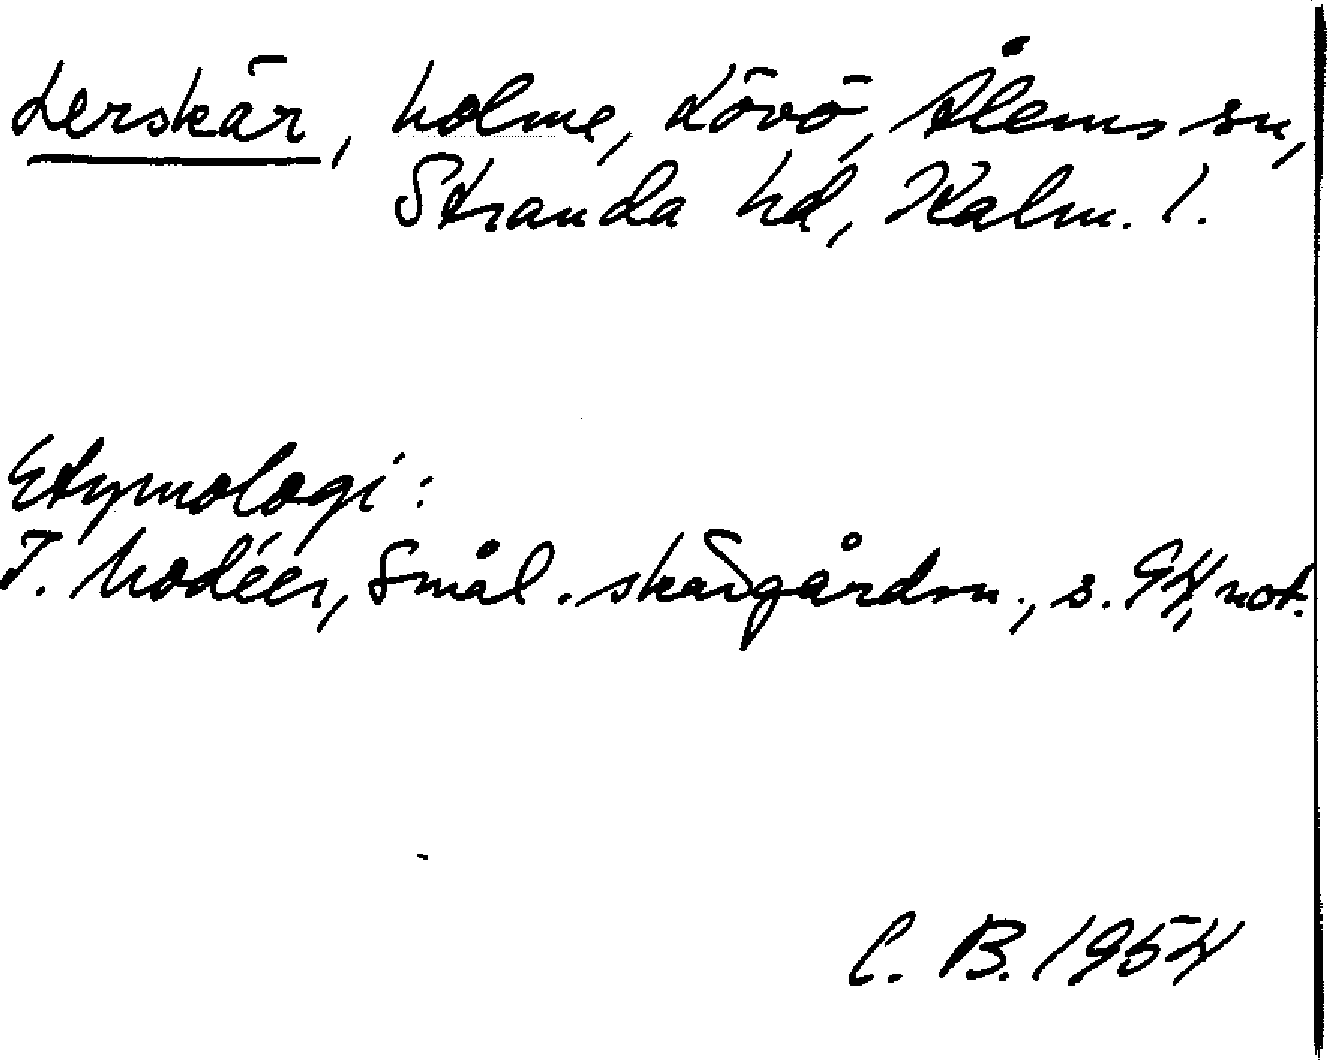 Lerskär, holme, Lövö, Ålems sn,
Stranda hd, Kalm. l.
Etymologi:
I. Modéer, Smål. skärgårdsn., s. 94, not.
C. B. 1954